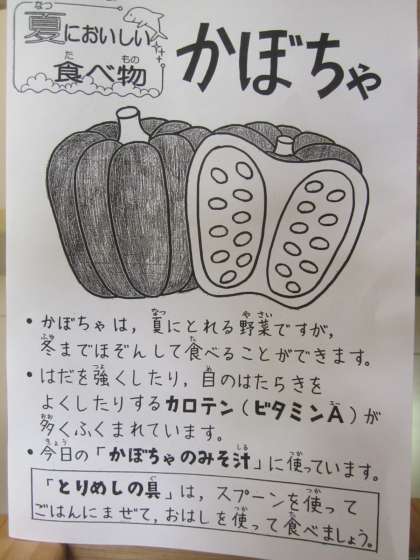 夏においしい
食べ物
かぼちゃ
・かぼちゃは，夏にとれる野菜ですが，
冬までほぞんして食べることができます。
・はだを強くしたり，目のはたらきを
よくしたりするカロテン（ビタミンA）が
多くふくまれています。
・今日の「かぼちゃのみそ汁」に使っています。
「とりめしの具」は，スプーンを使って
ごはんにまぜて，おはしを使って食べましょう。